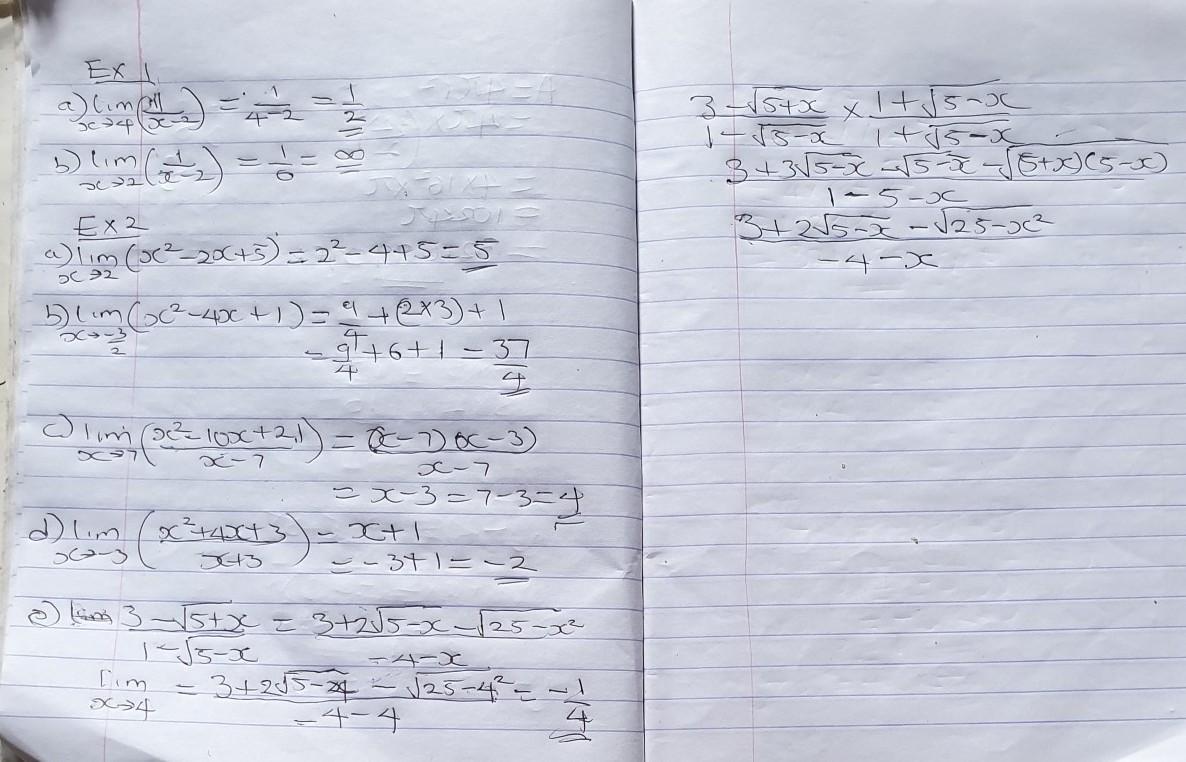 Ex 1
a) lim x→4 (1/(x-2)) = 1/(4-2) = 1/2
b) lim x→2 (1/(x-2)) = 1/0 = ∞
Ex 2
a) lim x→2 (x²-2x+5) = 2²-4+5 = 5
b) lim x→-3/2 (x²-4x+1) = 9/4 + (2×3) + 1
= 9/4 + 6 + 1 = 37/4
c) lim x→7 ((x²-10x+21)/(x-7)) = (x-7)(x-3)/(x-7)
= x-3 = 7-3 = 4
d) lim x→-3 ((x²+4x+3)/(x+3)) = x+1
= -3+1 = -2
e) (3-√(5+x))/(1-√(5-x)) = (3+2√(5-x) -√(25-x²))/(-4-x)
lim x→4 = (3+2√(5-4) - √(25-4²))/(-4-4) = -1/4
(3-√(5+x))/(1-√(5-x)) × (1+√(5-x))/(1+√(5-x))
(3+3√(5-x) -√(5-x) -√((5+x)(5-x)))/(1-5-x)
(3+2√(5-x) -√(25-x²))/(-4-x)